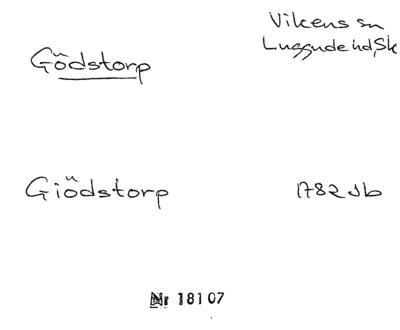 Vikens sn
Luggude hd, Sk
Gödstorp
Giödstorp
1782 Jb
Nr 18107